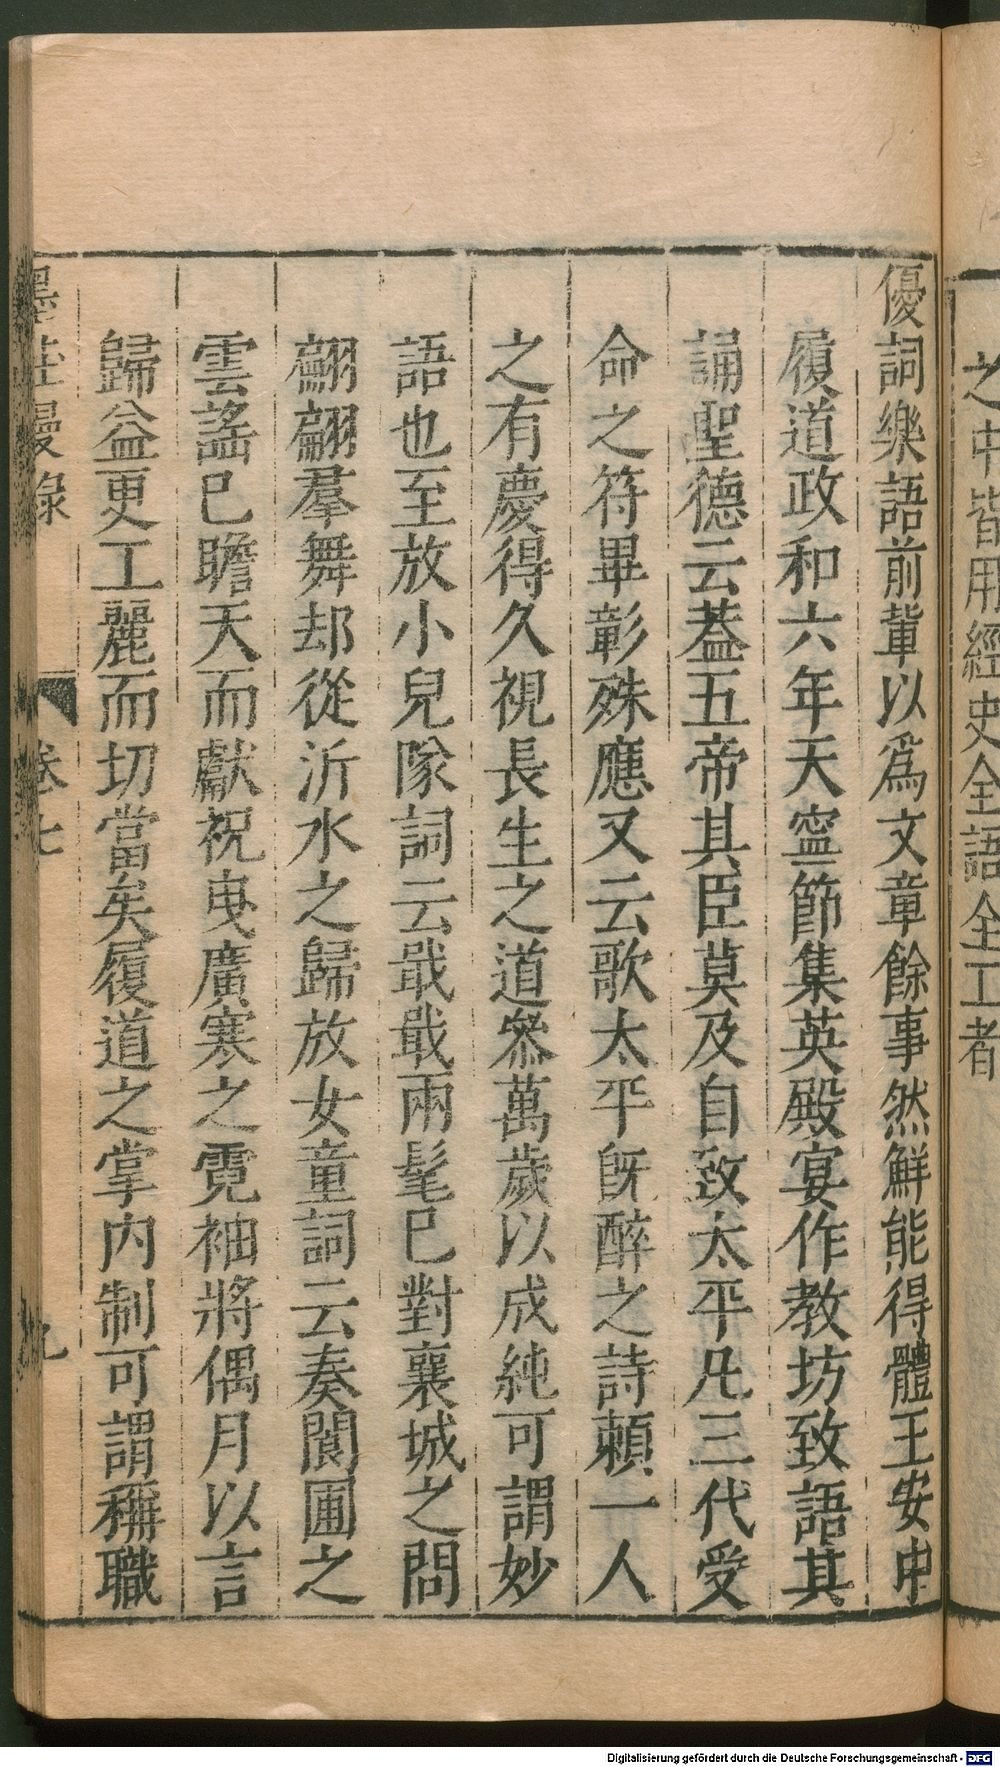 之中皆用經史全語全工者
優詞樂語前輩以爲文章餘事然鮮能得體王安中
履道政和六年天寧節集英殿宴作教坊致語其
誦聖德云葢五帝其臣莫及自致太平凡三代受
命之符畢彰殊應又云歌太平旣醉之詩賴一人
之有慶得久視長生之道叅萬歲以成純可謂妙
語也至放小兒隊詞云戢戢兩髦巳對襄城之問
翩翩羣舞却從沂水之歸放女童詞云奏閬圃之
雲謠巳瞻天而獻祝曳廣寒之霓袖將偶月以言
歸益更工麗而切當矣履道之掌内制可謂稱職
墨莊漫錄 卷七 九
Digitalisierung gefördert durch die Deutsche Forschungsgemeinschaft - DFG